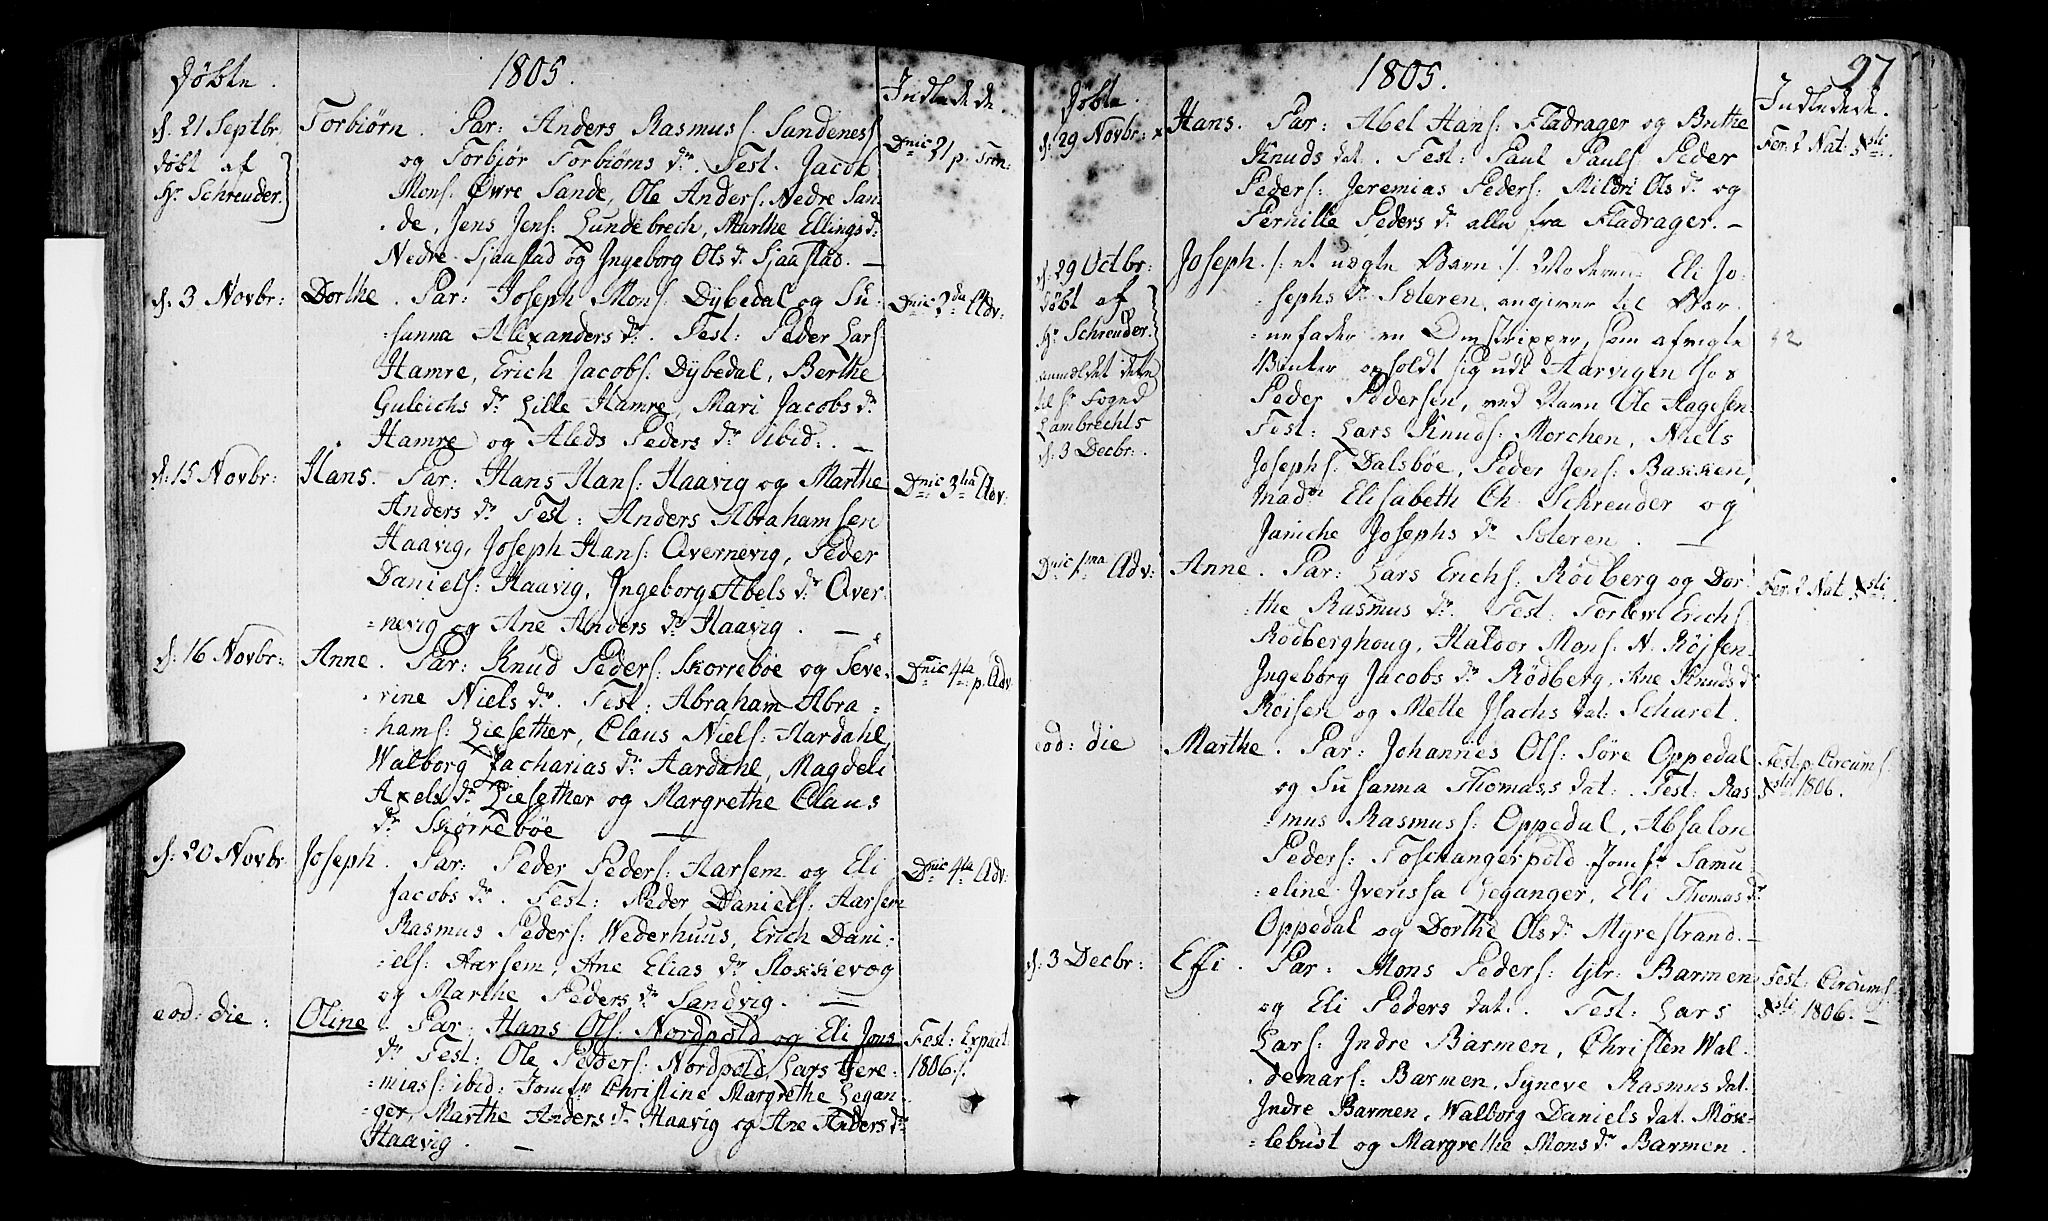 Døbte.
1805.
Indledede
d: 21 Septbr:
døbt af
Hr Schreuder.
Torbiørn. Par: Anders Rasmuss. Sandenes
og Torbjør Torbiørns dr. Test. Jacob
Mons: Øvre Sande, Ole Anders: Nedre San-
de, Jens Jens: Lundebrech, Marthe Ellings dr
Nedre Sjaastad og Ingeborg Ols dr Sjaastad. —
Dnic 21 p. Trin:
d: 3 Novbr:
Dorthe. Par: Joseph Mons: Dybedal og Su-
sanna Alexanders dr. Test: Peder Lars:
Hamre, Erich Jacobs: Dybedal, Berthe
Guleichs dr Lille Hamre, Mari Jacobs dr
Hamre og Aleds Peders dr ibid: —
Dnic 2da Adv:
d: 15 Novbr:
Hans. Par: Hans Hans: Haavig og Marthe
Anders dr Test: Anders Abrahamsen
Haavig, Joseph Hans: Overnevig, Peder
Daniels: Haavig, Ingeborg Abels dr Over-
nevig og Ane Anders dr Haavig. —
Dnic 3tia Adv:
d: 16 Novbr:
Anne. Par: Knud Peders: Skorrebøe og Seve-
rine Niels dr. Test: Abraham Abra-
hams: Liesether, Claus Niels: Aardahl,
Walborg Zacharias dr Aardahl, Magdeli
Axels dr Liesether og Margrethe Claus
dr Skørrebøe —
Dnic 4ta p. Adv
d: 20 Novbr
Joseph. Par: Peder Peders: Aarsem og Eli
Jacobs dr. Test: Peder Daniels: Aarsem
Rasmus Peders: Wederhuus, Erich Dani-
els: Aarsem, Ane Elias dr Kløkkevog
og Marthe Peders dr Sandvig. —
Dnic 4ta Adv:
eod: die:
Oline. Par: Hans Ols: Nordpold og Eli Jons
dr Test: Ole Peders: Nordpold, Lars Jere-
mias: ibid: Jomfr Christine Margrethe Legan-
ger, Marthe Anders dr Haavig og Ane Anders dr
Haavig. —
Fest:
1806.
Døbte.
1805.
Indledede.
97
d: 29 Novbr:
Hans. Par: Abel Hans: Fladrager og Brithe
Knuds dat. Test: Paul Pauls: Peder
Peders: Jeremias Peders: Mildri Ols dr og
Pernille Peders dr alle fra Fladrager. —
Fer: 2 Nat: Xsti.
d: 29 Octbr:
døbt af
Hr Schreuder.
anmeldet dette
til Sr Foged
Lambrechts
d: 3 Decbr:
Joseph. /: et uægte Barn :/ Moderen Eli Jo-
sephs dr Isteren, angiver til Bar-
nefader en Omstripper, som afvigte
Vinter opholdt sig udi Aarvigen hos
Peder Pedersen, ved Navn Ole Aagesen.
Test: Lars Knuds: Morchen, Niels
Josephs: Dalsbøe, Peder Jens: Bakken,
Madm Elisabeth Ch: Schreuder og
Janiche Josephs dr Isteren. —
Dnic 1ma Adv:
Anne. Par: Lars Erichs: Rødberg og Dor-
the Rasmus dr. Test: Torlevl Erichs
Rødberghoug, Halvor Mons: N. Røjsen
Ingeborg Jacobs dr Rødberg, Ane Knuds dr
Røisen og Mette Isachs dat: Schuret.
Fer: 2 Nat: Xsti.
eod: die
Marthe. Par: Johannes Ols: Søre Oppedal
og Susanna Thomass dat. Test: Ras
mus Rasmus: Oppedal, Absalon
Peders: Toschangerpold Jomfr Samu-
eline Iverissa Leganger, Eli Thomas dr
Oppedal og Dorthe Ols dr Myrestrand. —
Fest p. Circums:
Xsti 1806.
d: 3 Decbr:
Effi. Par: Mons Peders: Ytr: Barmen
og Eli Peders dat. Test: Lars
Lars: Indre Barmen, Christen Wal-
demars: Barmen, Syneve Rasmus dat.
Indre Barmen, Walborg Daniels dat. Møse-
lebust og Margrethe Mons dr Barmen.
Fest: Circums:
Xsti 1806. —